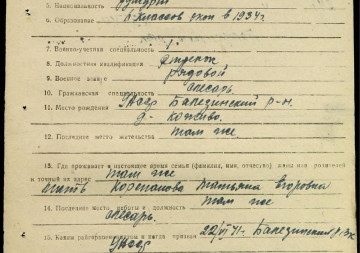 5. Национальность удмурт
6. Образование 4 классов окон в 1934 г.
7. Военно-учетная специальность 1
8. Должностная квалификация стрелок
9. Военное звание рядовой
10. Гражданская специальность слесарь.
11. Место рождения УАССР Балезинский р-н.
д. Кожево.
12. Последнее место жительства там же
13. Где проживает в настоящее время семья (фамилия, имя, отчество) жены или родителей
и точный их адрес там же
мать Корепанова Татьяна Егоровна
14. Последнее место работы и должность там же
слесарь.
15. Каким райгорвоенкоматом и когда призван 22/VI 41 г. Балезинским РВК
УАССР